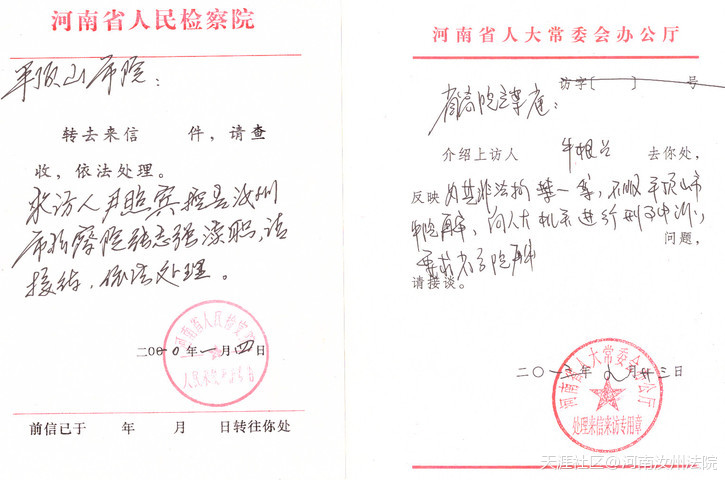 河南省人民检察院
平顶山市院：
转去来信 件，请查
收，依法处理。
来访人尹照宾控告汝州
市检察院张志强渎职，请
接待，依法处理。
河南省人民检察院
二〇〇〇年一月四日
前信已于 年 月 日转往你处
河南省人大常委会办公厅
访字[ ] 号
省高院立案庭：
介绍上访人 牛根兰 去你处，
反映 再审，向人大机关进行
问题，
要求省高院再审
请接谈。
河南省人大常委会办公厅
处理来信来访专用章
月廿三日
天涯社区@河南汝州法院